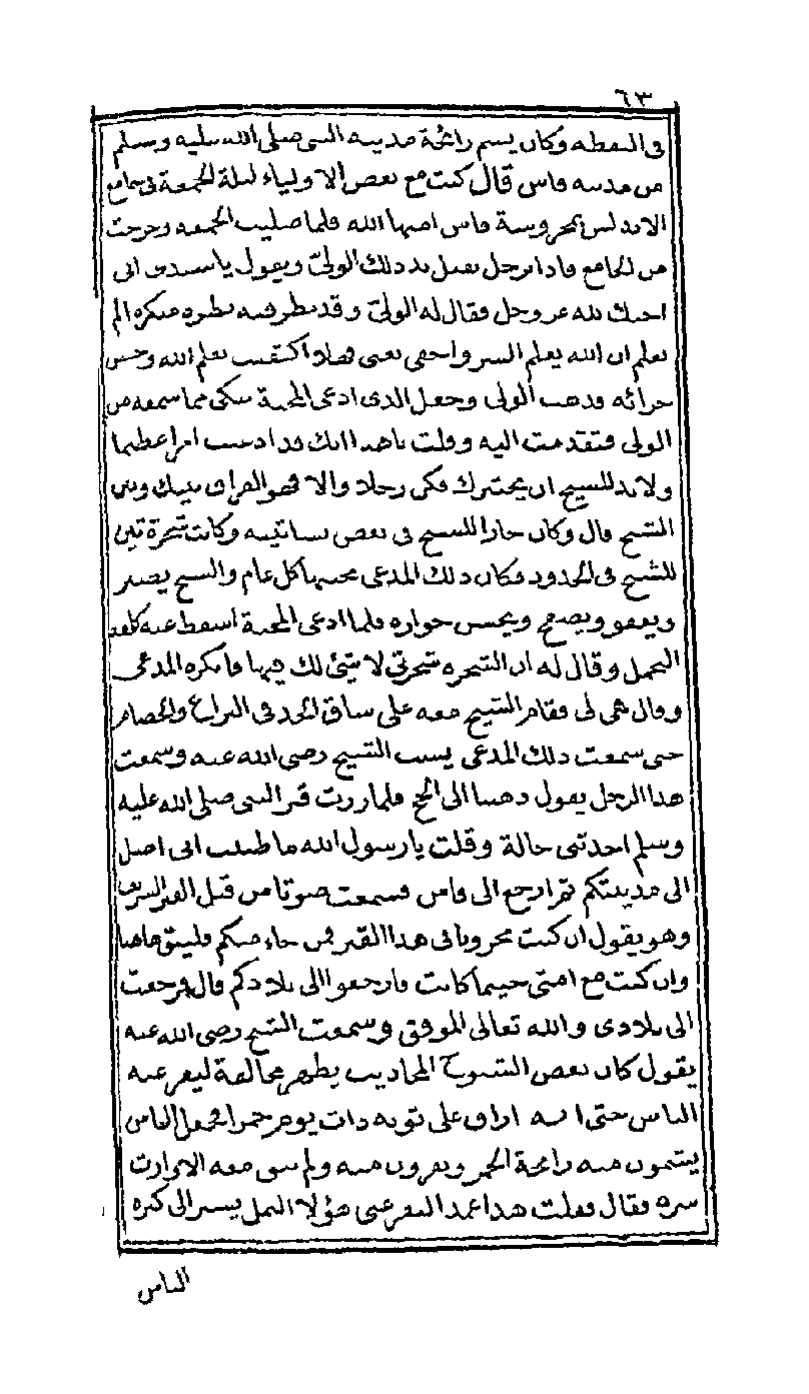 ٦٣
فى اليقظه وكان يشم رائحة مدينه النبى صلى الله عليه وسلم
من مدينه فاس قال كنت مع بعض الاولياء ليلة الجمعة فى جامع
الاندلس بمحروسة فاس امنها الله فلما صليت الجمعه وخرجت
من الجامع فاذا برجل يقبل يد ذلك الولىّ ويقول ياسيدى انى
احبك لله عز وجل فقال له الولىّ وقد نظر فيه نظره منكره الم
تعلم ان الله يعلم السر واخفى يعنى فهلا اكتفيت بعلم الله وحسن
جزائه وذهب الولى وجعل الذى ادعى المحبة يبكى مما سمعه من
الولى فتقدمت اليه وقلت ياهذا انك قد ادعيت امرا عظيما
ولابد للشيخ ان يختبرك فكن رجلا والا فهو الفراق بينك وبين
الشيخ قال وكان جارا للشيخ فى بعض بساتينه وكانت شجرة تين
للشيخ فى الحدود فكان ذلك المدعى يجنيها كل عام والشيخ يصبر
ويعفو ويصفح ويحسن جواره فلما ادعى المحبة اسقط عنه كلفه
التحمل وقال له ان الشجره شجرتى لا شئ لك فيها فانكره المدعى
وقال هى لى فقام الشيخ معه على ساق الجد فى النزاع والخصام
حتى سمعت ذلك المدعى يسب الشيخ رضى الله عنه وسمعت
هذا الرجل يقول ذهبنا الى الحج فلما زرت قبر النبى صلى الله عليه
وسلم اخذتنى حالة وقلت يارسول الله ما ظننت انى اصل
الى مدينتكم ثم ارجع الى فاس فسمعت صوتا من قبل القبر الشريف
وهو يقول ان كنت مخزونا فى هذا القبر فمن جاء منكم فليبق هاهنا
وان كنت مع امتى حيثما كانت فارجعوا الى بلادكم قال فرجعت
الى بلادى والله تعالى الموفق وسمعت الشيخ رضى الله عنه
يقول كان بعض الشيوخ المجاذيب يظهر مخالفة ليفر عنه
الناس حتى انه اراق على ثوبه ذات يوم خمرا فجعل الناس
يشمون منه رائحة الخمر ويفرون منه ولم يبق معه الا وارث
سره فقال فعلت هذا عمدا ليفر عنى هؤلا النمل يشير الى كثره
الناس